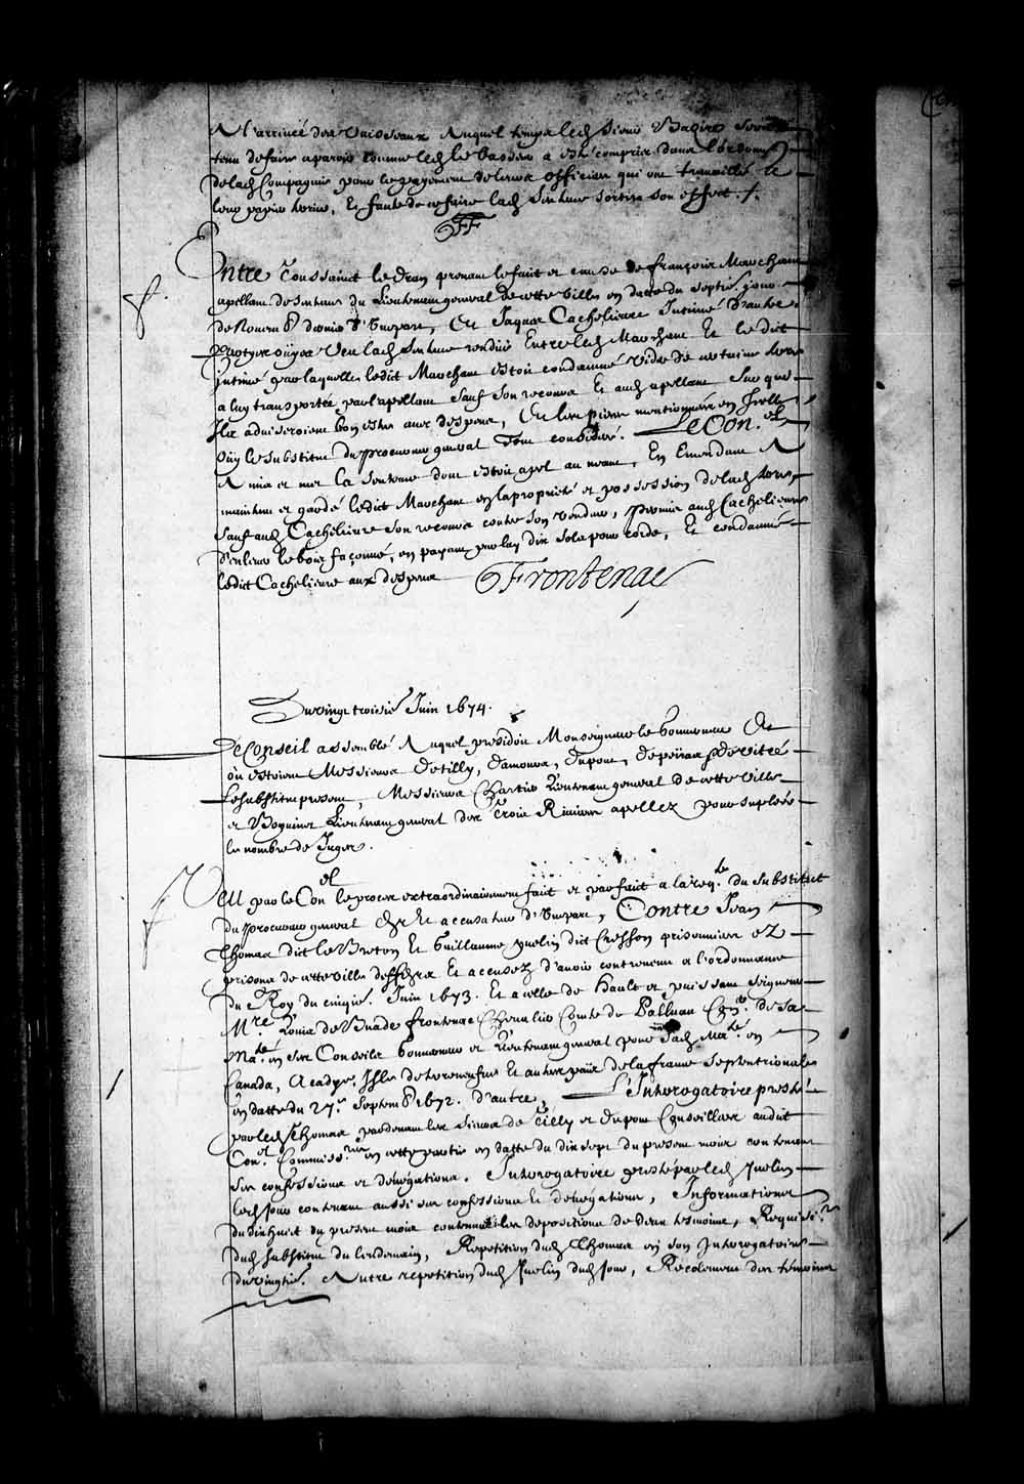 A l'arrivée des Vaisseaux Auquel temps led. Sieur Bazire sera
tenu de faire aparoir comme led. le Vasseur a esté compris dans l'ordon.
de lad. Compagnie pour le payement de leurs officiers qui ont travaillé le
long papier terrier, Et faute de ce faire lad. Sentence sortira son effect ./.
FF
Entre Toussainct le dran prenant le fait et cause de françois Marchant
apellant de Sentence du Lieutenant general de cette Ville en datte du Septie. Jour
de Novem 8 dernier d'Unepart, Et Jaques Cachelievre Intimé d'autre
Partye oüyes Veu lad. Sentence rendüe Entre led. Marchant Et le dit
intimé par laquelle ledit Marchant estoit condamné Vider de certaine terre
a luy transportée par l'apellant sauf son recours Et aud. apellant sur que
Ilz adviseroient bon estre avec despens, Et les pieces mentionnées en Icelle
Oüy le substitut du procureur general Tout consideré. Le Con.el
A mis et met la Sentence dont estoit apel au neant, En Emendant A
maintenu et gardé ledit Marchant en la proprieté et possession de lad. terre,
Sauf aud. Cachelievre son recours contre son vendeur, permis aud. Cachelievre
d'enlever le bois façonné, en payant par luy dix sols pour corde, Et condamné
ledit Cachelievre aux despens Frontenac
Du vingt troisie. Juin 1674.
Le Conseil assemblé Auquel presidoit Monseigneur le Gouverneur Et
où estoient Messieurs de Tilly, damours, dupont, de peiras & de vitré
Le substitut present, Messieurs Chartier Lieutenant general de cette Ville
et Boyvinet Lieutenant general des Trois Rivieres apellez pour supleer
le nombre de Juges.
Veu par le Con.el le procez extraordinairement fait et parfait a la req.te du substitut
du procureur general Et accusateur d'Unepart, Contre Jean
Thomas dit le Breton Et Guillaume Yvelin dit Cresson prisonniers ez
prisons de cette Ville deffen. Et accusez d'avoir contrevenu a l'ordonnance
du Roy du cinqie. Juin 1673. Et a celle de Hault et puissant Seigneur
M.re Louis de Buade frontenac Chevalier Comte de Palluau Con.er de Sa
Ma.té en ses Conseils Gouverneur et Lieutenant general pour sad. Ma.té en
Canada, Acadye, Isle de terreneufve Et autres païs de la france Septentrionale
en datte du 27.e Septem 8 1672. d'autre, L'Interogatoire presté
par led. Thomas pardevant les Sieurs de Tilly et dupont Conseillers audit
Con.el Commiss.res en cette partie en datte du dix sept du present mois contenant
ses confessions et denegations. Interogatoire presté par led. Yvelin
led. jour contenant aussi ses confessions Et denegations, Informations
du dixhuict du present mois contenant les depositions de deux tesmoins, Requisi.re
dud. substitut du lendemain, Repetition dud. Thomas en son Interogatoire
du vingtie. Autre repetition dud. Yvelin dud. jour, Recolement des témoins